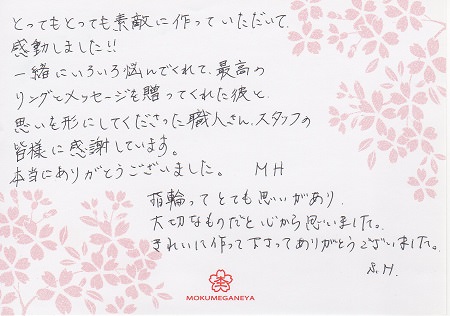 とってもとっても素敵に作っていただいて、
感動しました!!
一緒にいろいろ悩んでくれて、最高の
リングとメッセージを贈ってくれた彼と、
思いを形にしてくださった職人さん、スタッフの
皆様に感謝しています。
本当にありがとうございました。 MH
指輪ってとても思いがあり、
大切なものだと心から思いました。
きれいに作って下さってありがとうございました。
S.H.
MOKUMEGANEYA